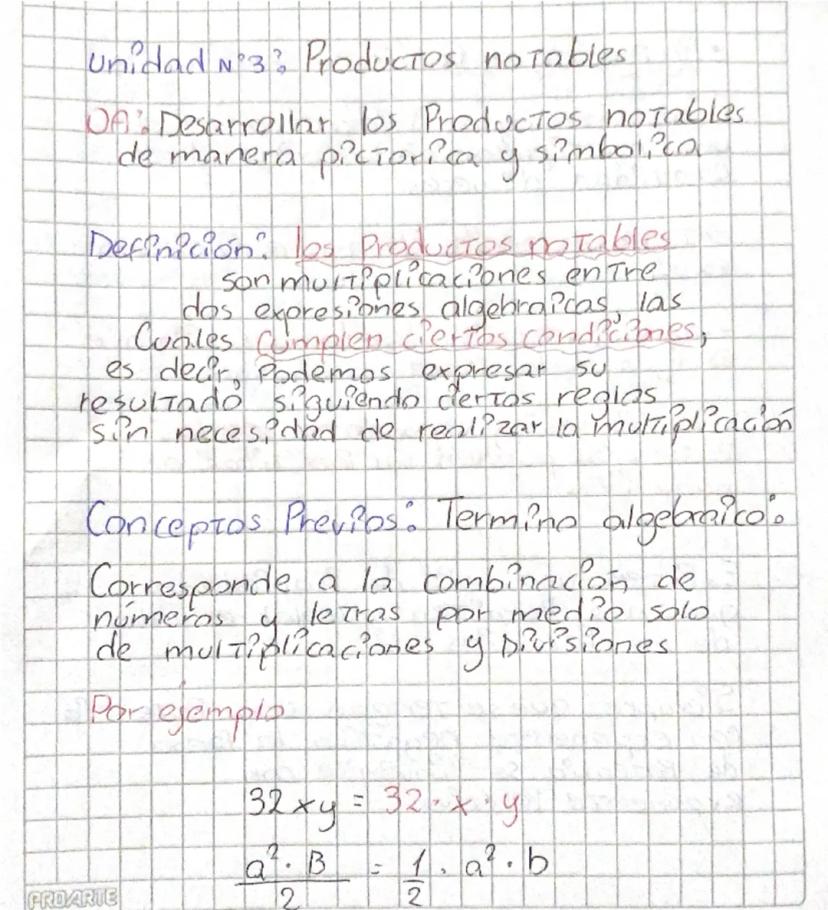 Unidad N°3: Productos notables
OA: Desarrollar los Productos notables
de manera pictorica y simbolica
Definición: los Productos notables
son multiplicaciones entre
dos expresiones algebraicas, las
Cuales cumplen ciertas condiciones,
es decir, Podemos expresar su
resultado siguiendo ciertos reglas
sin necesidad de realizar la multiplicación
Conceptos Previos: Termino algebraico:
Corresponde a la combinación de
números y letras por medio solo
de multiplicaciones y Divisiones
Por ejemplo
32xy = 32 · x · y
a² · B / 2 = 1/2 · a² · b
PROARTE